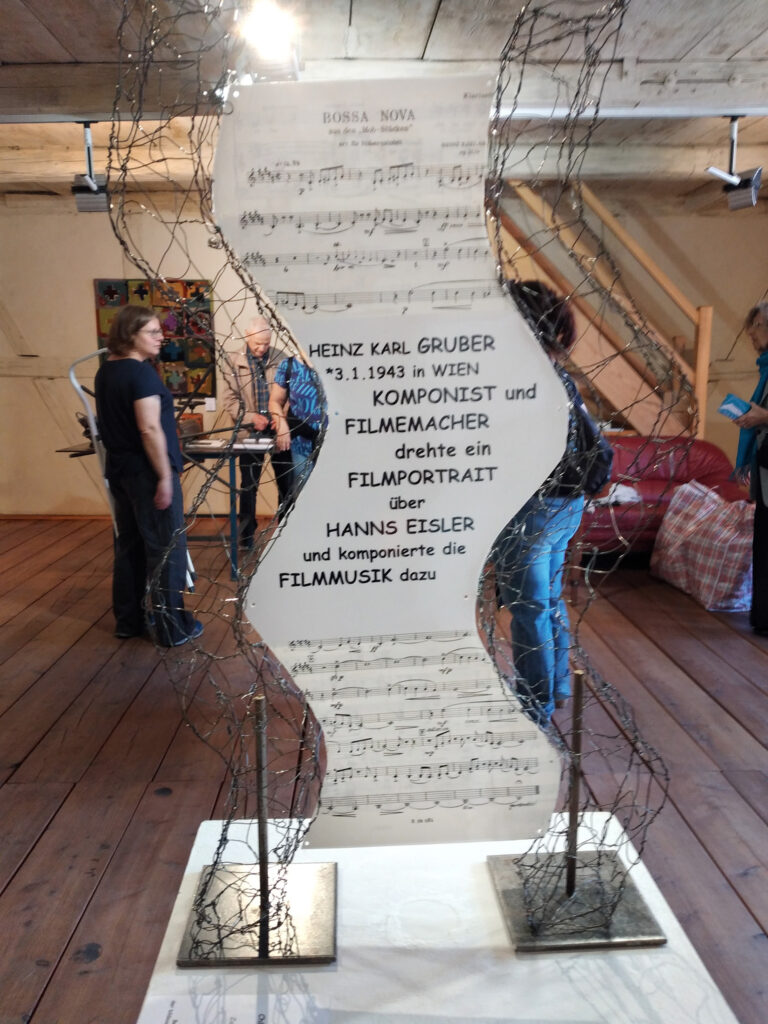 Klarinet
BOSSA NOVA
aus den „Mob-Stücken"
HEINZ KARL GRUBER
*3.1.1943 in WIEN
KOMPONIST und
FILMEMACHER
drehte ein
FILMPORTRAIT
über
HANNS EISLER
und komponierte die
FILMMUSIK dazu